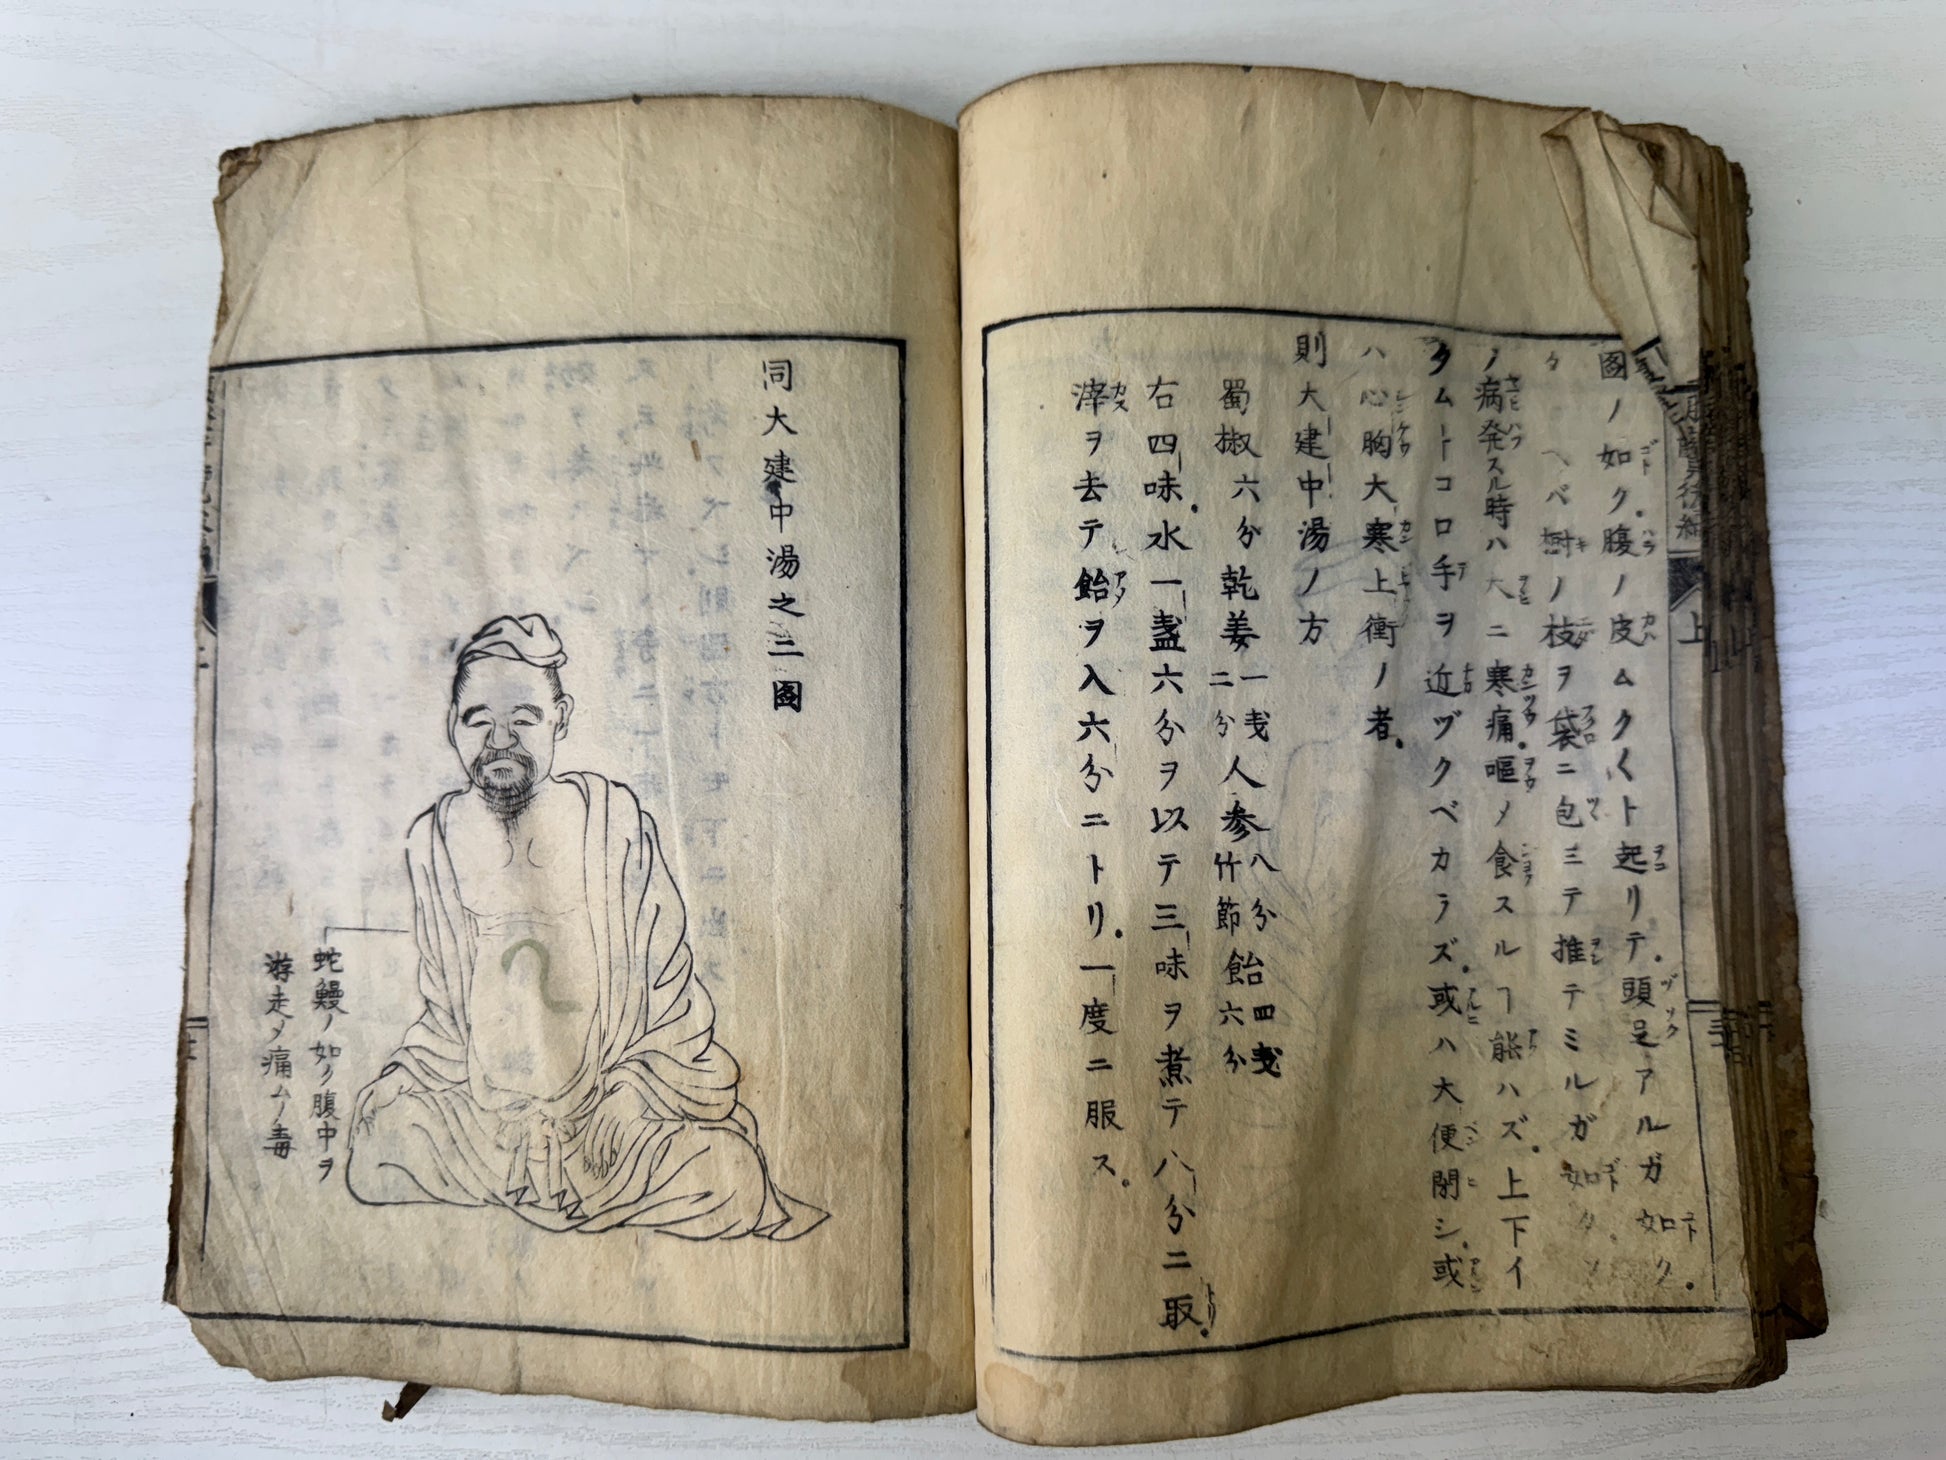 圖ノ如ク。腹ノ皮ムク〱ト起リテ。頭足アルガ如ク。
ヘバ樹ノ枝ヲ袋ニ包ミテ推テミルガ如
ノ病発スル時ハ大ニ寒痛。嘔メ食スルヿ能ハズ。上下イ
タムトコロ手ヲ近ヅクベカラズ。或ハ大便閉シ。或
ハ心胸大寒上衝ノ者。
則大建中湯ノ方
蜀椒六分乾姜一戔二分人参八分竹節飴四戔六分
右四味。水一盞六分ヲ以テ三味ヲ煮テ八分ニ取。
滓ヲ去テ飴ヲ入六分ニトリ。一度ニ服ス。
上
同大建中湯之三圖
蛇鰻ノ如ク腹中ヲ
游走メ痛ムノ毒